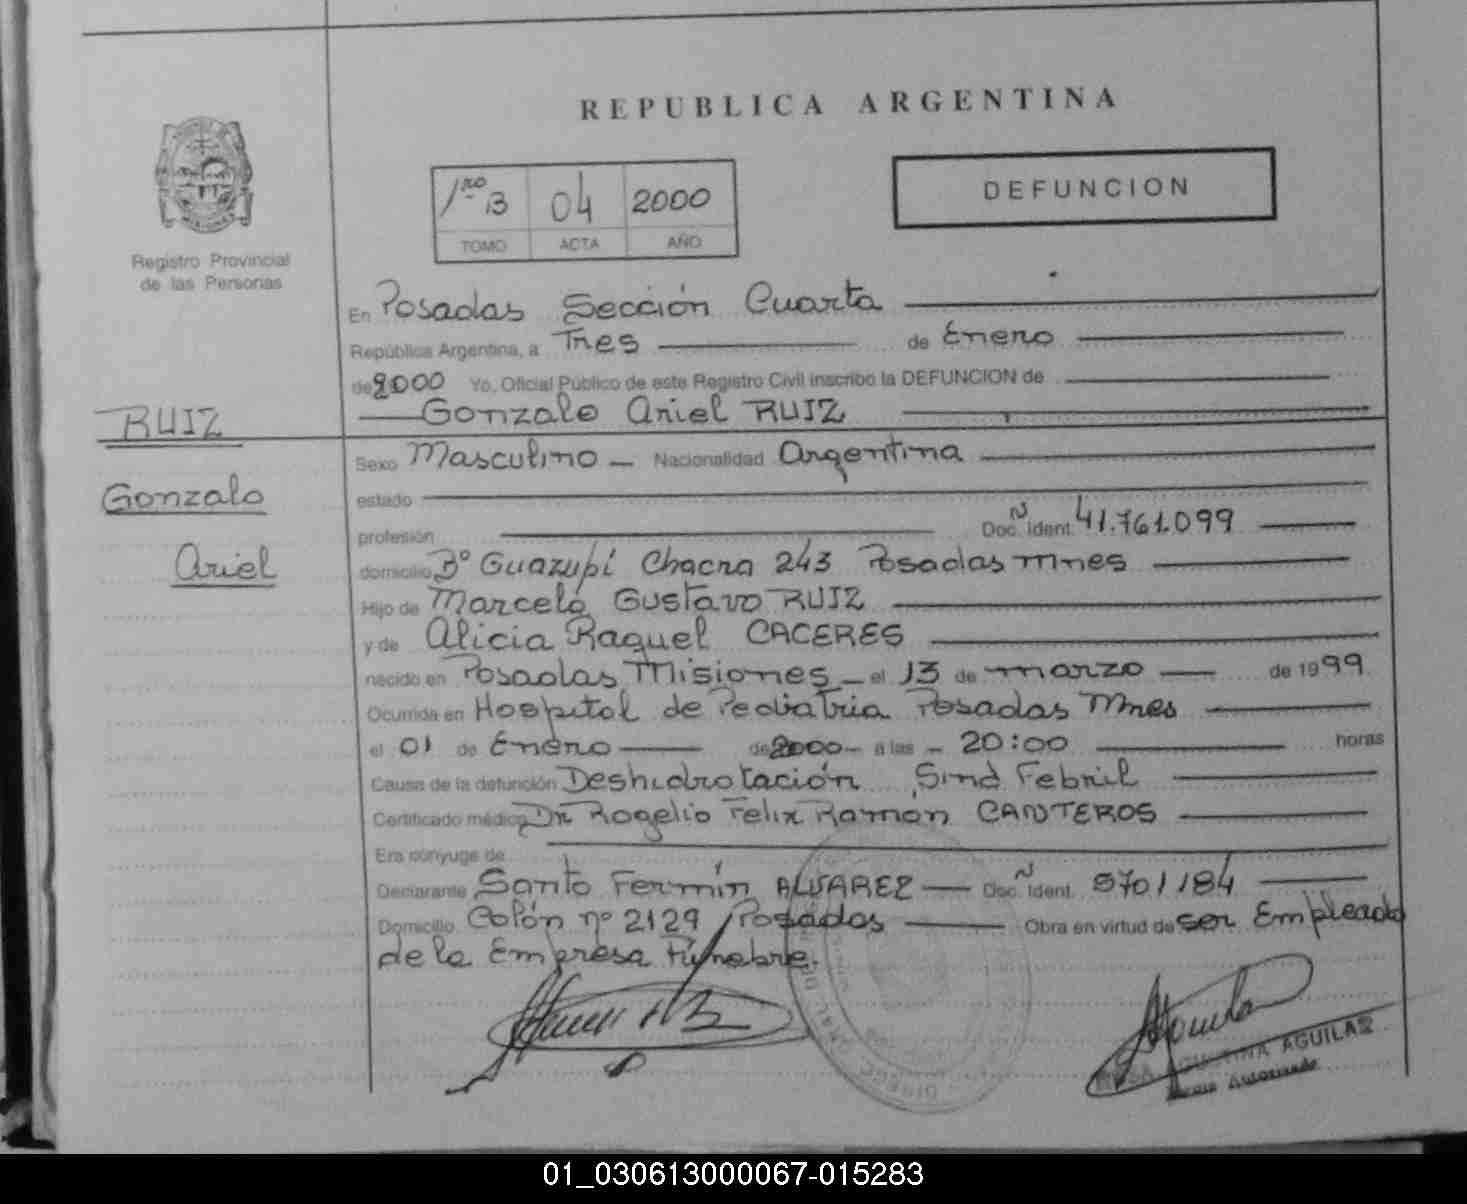 REPUBLICA ARGENTINA
1ro B 04 2000
TOMO ACTA AÑO
DEFUNCION
Registro Provincial
de las Personas
En Posadas Sección Cuarta
República Argentina, a Tres de Enero
de 2000 Yo, Oficial Público de este Registro Civil inscribo la DEFUNCION de
Gonzalo Ariel RUIZ
RUIZ
Gonzalo
Ariel
Sexo Masculino Nacionalidad Argentina
estado
profesión Doc. Ident. Nº 41.761.099
domicilio Bº Guazupí Chacra 243 Posadas Mnes
Hijo de Marcelo Gustavo RUIZ
y de Alicia Raquel CACERES
nacido en Posadas Misiones el 13 de marzo de 1999
Ocurrida en Hospital de Pediatria Posadas Mnes
el 01 de Enero de 2000 a las 20:00 horas
Causa de la defunción Deshidrotación Sind Febril
Certificado médico Dr Rogelio Felix Ramón CANTEROS
Era cónyuge de
Declarante Santo Fermín ALVAREZ Doc. Ident. N 5701184
Domicilio Colón nº 2129 Posadas Obra en virtud de ser Empleado
de la Empresa Fúnebre.
AGUILAR
01_030613000067-015283